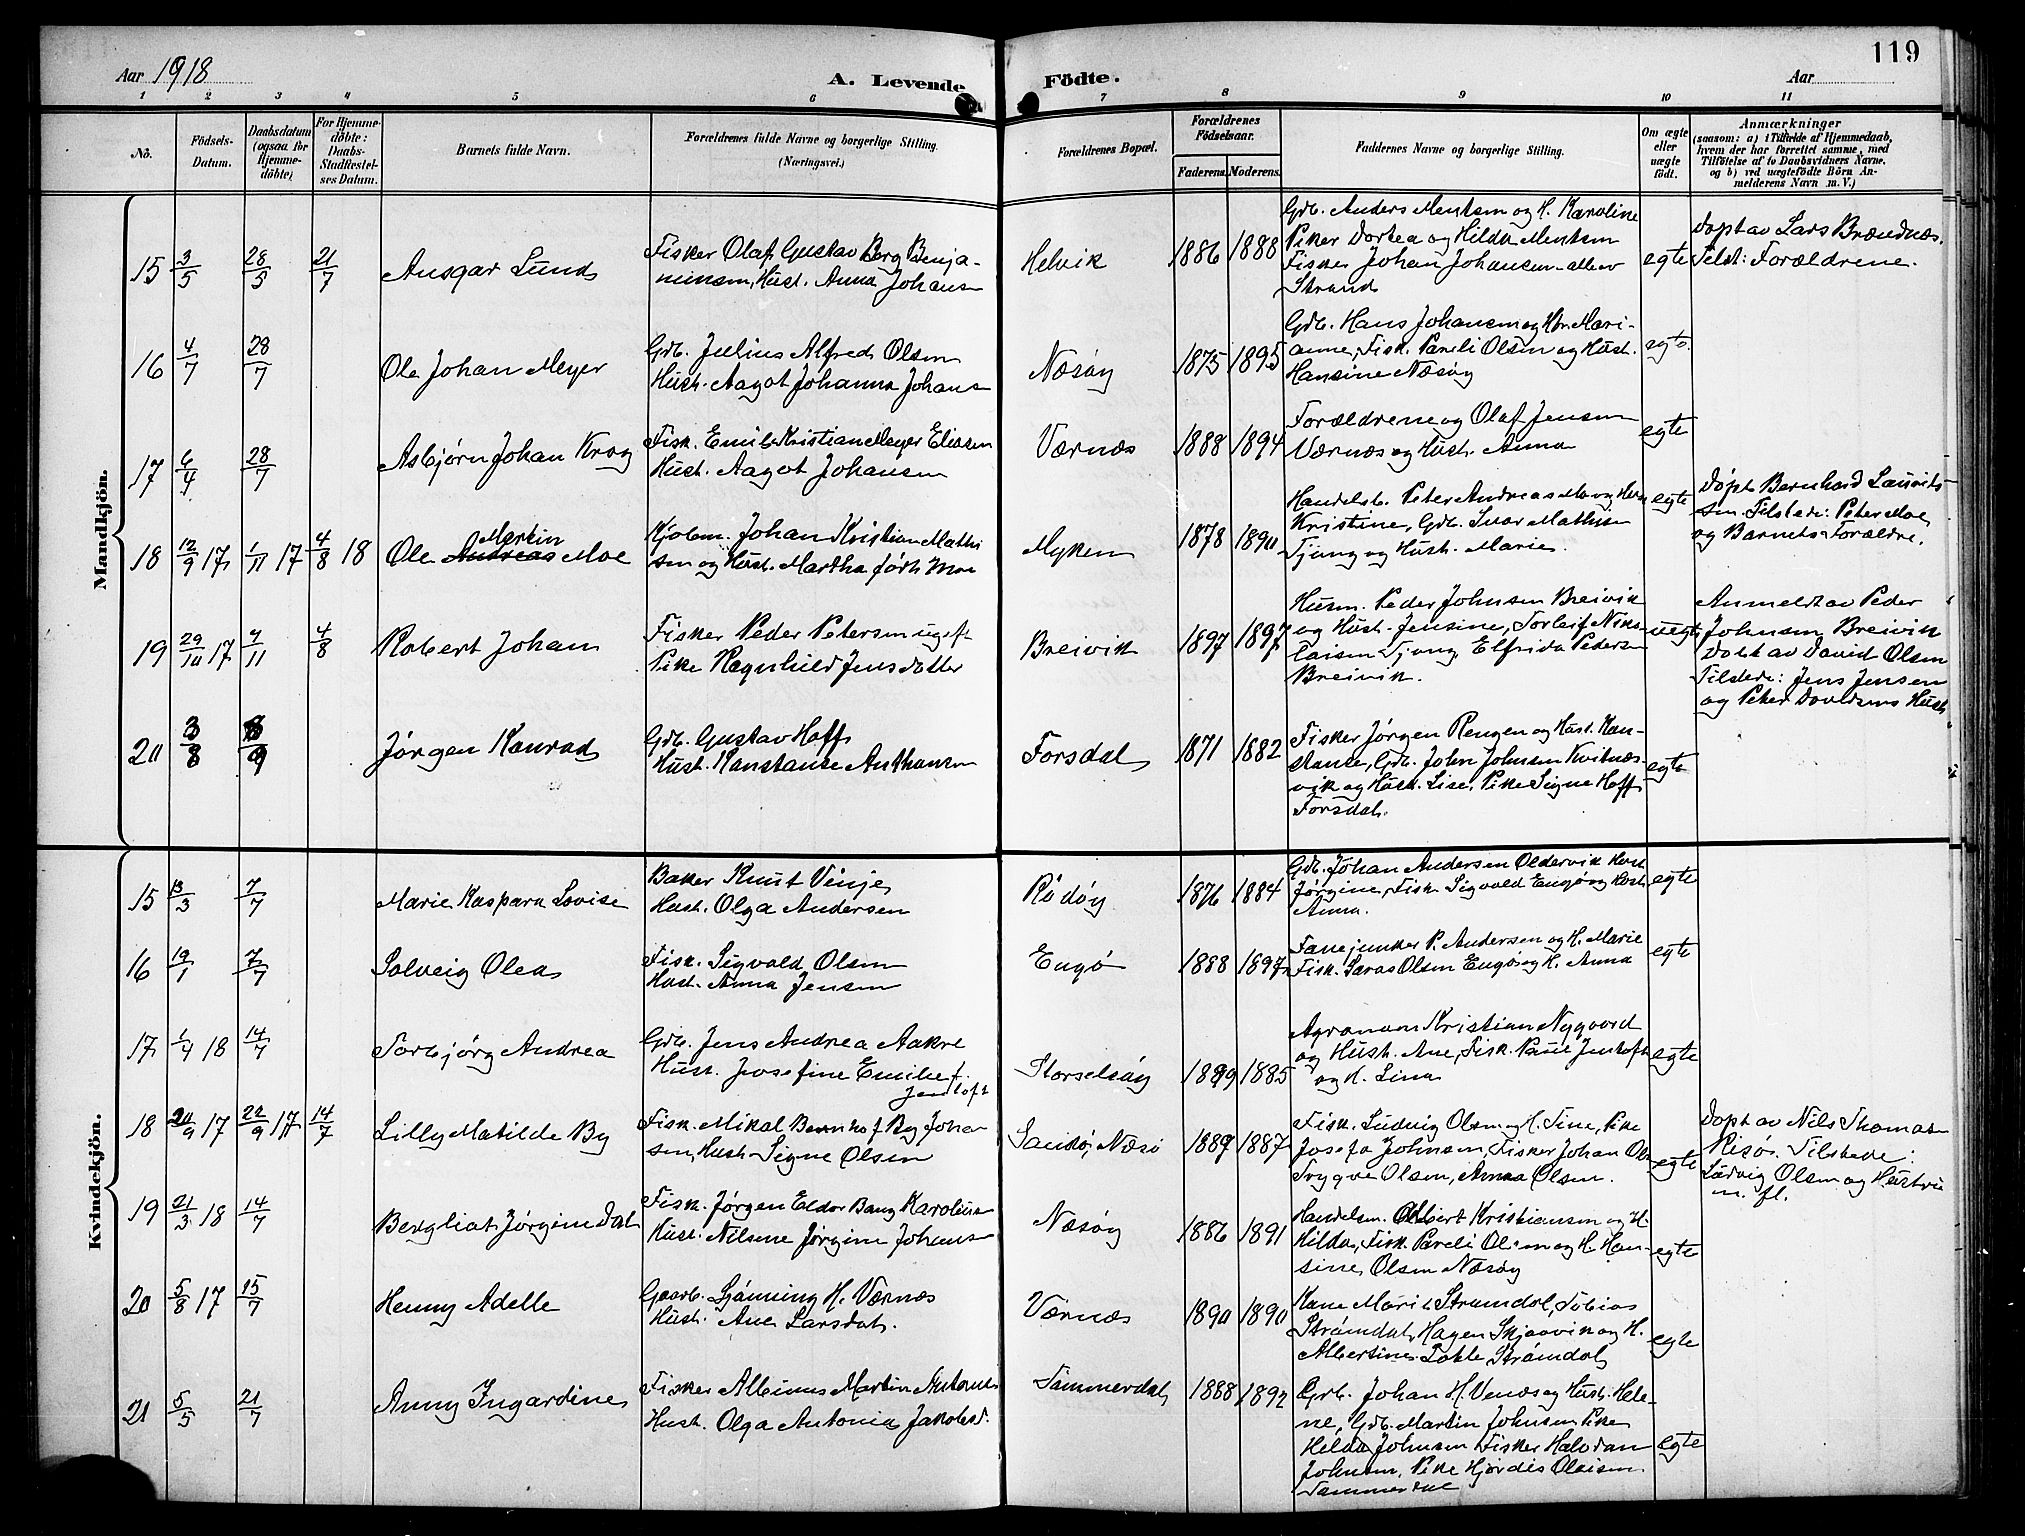 119
Aar 1918
A. Levende
Födte.
Aar
1 2 3 4 5 6 7 8 9 10 11
No.
Födsels-
Datum.
Daabsdatum
(ogsaa for
Hjemme-
döbte)
For Hjemme-
döbte:
Daabs-
Stadfæstel-
ses Datum.
Barnets fulde Navn.
Forældrenes fulde Navne og borgerlige Stilling.
(Næringsvei.)
Forældrenes Bopæl.
Forældrenes
Födselsaar.
Faderens. Moderens.
Faddernes Navne og borgerlige Stilling.
Om ægte
eller
uægte
födt.
Anmærkninger
(saasom: a) i Tilfælde af Hjemmedaab,
hvem der har forrettet samme, med
Tilföielse af to Daabsvidners Navne,
og b) ved uægtefödte Börn An-
melderens Navn m. V.)
Mandkjön.
15 3/5 28/3 21/7
Ansgar Lund
Fisker Olaf Gustav Berg Benja-
minsen, Hust. Anna Johans
Helvik
1886 1888
Gdb. Anders Mentsen og H. Karoline
Piker Dortea og Hilda Mentsen
Fisker Johan Johansen alle av
Strand
egte
Døpt av Lars Brændnæs.
Tilst: Forældrene.
16 4/7 28/7
Ole Johan Meyer
Gdb. Julius Alfred Olsen
Hust. Aagot Johanna Johans
Næsøy
1875 1895
Gdb. Hans Johansen og Hv. Mari-
anne, Fisk. Pareli Olsen og Hust.
Hansine Næsøy
egte
17 6/4 28/7
Asbjørn Johan Krog
Fisk. Emil Kristian Meyer Eliasen
Hust. Aagot Johansen
Værnæs
1888 1894
Forældrene og Olaf Jensen
Værnæs og Hust. Anna
egte
18 12/9 17 1/11 17 4/8 18
Martin
Ole Andreas Moe
Johan Kristian Mathi
sen og Hust. Martha født Moe
Myken
1878 1890
Handelsb. Peter Andreas Moe og Hust
Kristine, Gdb. Ivar Mathisen
Tjong og Hust. Marie.
egte
Døpt Bernhard Lauvits-
sen. Tilstede: Peter Moe
og Barnets Forældre.
19 29/10 17 4/11 4/8
Robert Johan
Fisker Peder Petersen ugift
Pike Ragnhild Jensdatter
Breivik
1897 1897
Husm. Peder Johnsen Breivik
og Hust. Jensine, Torleif Niko-
laisen Tjong, Elfrida Pedersen
Breivik.
uegte
Anmeldt av Peder
Johnsen Breivik
Døpt av David Olsen
Tilstede: Jens Jensen
og Peter Davidsens Hust
20 3/8 8/9
Jørgen Konrad
Gdb. Gustav Hoff
Hust. Konstanse Anthonsen
Forsdal
1871 1882
Fisker Jørgen Rengen og Hust. Kon-
stanse, Gdb. John Johnsen Kvitnæs-
vik og Hust. Lise, Pike Signe Hoff
Forsdal.
egte
Kvindekjön.
15 13/3 7/7
Marie Kaspara Lovise
Baker Knut Vinje
Hust. Olga Andersen
Rødøy
1876 1884
Gdb. Johan Andersen Oldervik Hust
Jørgine, Fisk. Sigvald Engø og Hust
Anna.
egte
16 19/1 7/7
Solveig Olea
Fisk. Sigvald Olsen
Hust. Anna Jensen
Engø
1888 1897
Fanejunker P. Andersen og H. Marie
Fisk. Saras Olsen Engø og H. Anna
egte
17 1/4 18 14/7
Torbjørg Andrea
Gdb. Jens Andrea Aakre
Hust. Josefine Emilie f.
Jentoft
Storselsøy
1889 1885
Agronom Kristian Nygaard
og Hust. Ane, Fisk. Paul Jentoft
og H. Lina
egte
18 20/9 17 22/9 17 14/7
Lilly Matilde By
Fisk. Mikal Bernhof By Johan
sen, Hust. Signe Olsen
Næsø
1889 1887
Fisk. Ludvig Olsen og H. Tine, Pike
Josefa Johnsen, Fisker Johan Ols
Trygve Olsen, Anna Olsen.
egte
Døpt av Nils Thomas
Risø. Tilstede:
Ludvig Olsen og Hustru
m. fl.
19 21/3 18 14/7
Bergliot Jørgine Dal
Fisk. Jørgen Eldor Bang Karolius
Hust. Nilsine Jørgine Johans
Næsøy
1886 1891
Handelsm. Albert Kristiansen og H.
Hilda, Fisk. Pareli Olsen og H. Han-
sine Olsen Næsøy
egte
20 5/8 17 15/7
Henny Adelle
Gaarb. Ljønning H. Værnæs
Hust. Ane Larsdat.
Værnæs
1890 1890
Kone Marit Strømdal, Tobias
Strømdal, Hagen Skjaavik og H.
Albertine Strømdal
egte
21 5/5 21/7
Anny Ingardine
Fisker Albinus Martin Antons
Hust. Olga Antonia Jakobsd.
Tømmerdal
1888 1892
Grb. Johan H. Venæs og Hust. Hele-
ne, Gdb. Martin Johnsen Pike
Hilda Johnsen Fisker Halvdan
Johnsen, Pike Hjørdis Olaisen
Tømmerdal
egte